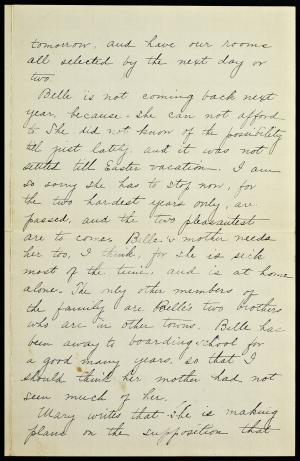 tomorrow, and have our rooms
all selected by the next day or
two.
Belle is not coming back next
year, because she can not afford
to. She did not know of the possibility
till just lately, and it was not
settled till Easter vacation. I am
so sorry she has to stop now, for
the two hardest years only, are
passed, and the two pleasantest
are to come. Belle's mother needs
her too, I think, for she is sick
most of the time, and is at home
alone. The only other members of
the family are Belle's two brothers
who are in other towns. Belle has
been away to boarding school for
a good many years, so that I
should think her mother had not
seen much of her.
Mary writes that she is making
plans on the supposition that